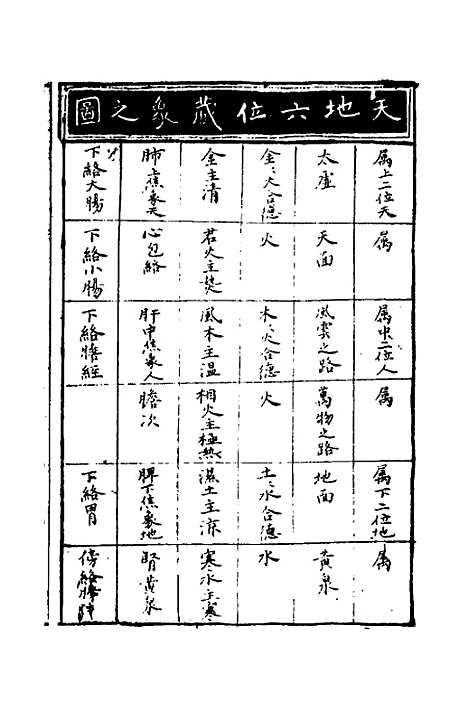 天地六位藏象之圖
属上二位天
太虛
金金火合德
金主清
肺上焦象天
下絡大腸
属
天面
火
君火主熱
心包絡
下絡小腸
属中二位人
風雲之路
木木火合德
風木主温
肝中焦象人
下絡膽經
属
萬物之路
火
相火主極熱
膽次
属下二位地
地面
土土水合德
濕土主凉
脾下焦象地
下絡胃
属
黄泉
水
寒水主寒
腎黄泉
傍絡膀胱